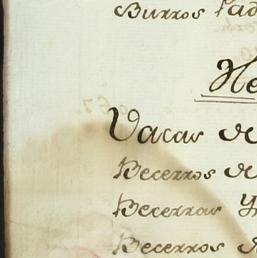 Burros Pad
He
Vacas de
Becerros de
Becerras y
Becerros de